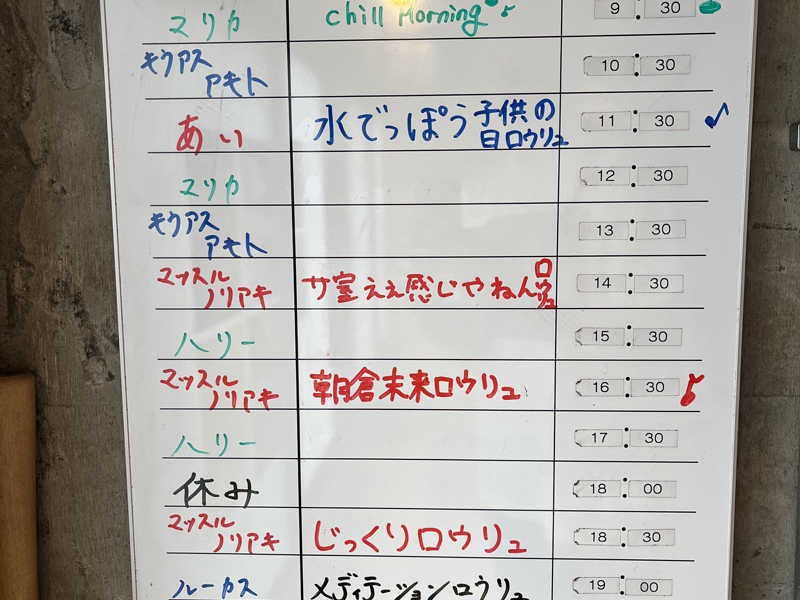 マリカ chill Morning♪ 9:30
キウアス アキト 10:30
あい 水でっぽう子供の日ロウリュ 11:30 ♪
マリカ 12:30
キウアス アキト 13:30
マッスル ノリアキ サ室ええ感じやねんロウリュ 14:30
ハリー 15:30
マッスル ノリアキ 朝倉未来ロウリュ 16:30 ♪
ハリー 17:30
休み 18:00
マッスル ノリアキ じっくりロウリュ 18:30
ルーカス メディテーションロウリュ 19:00